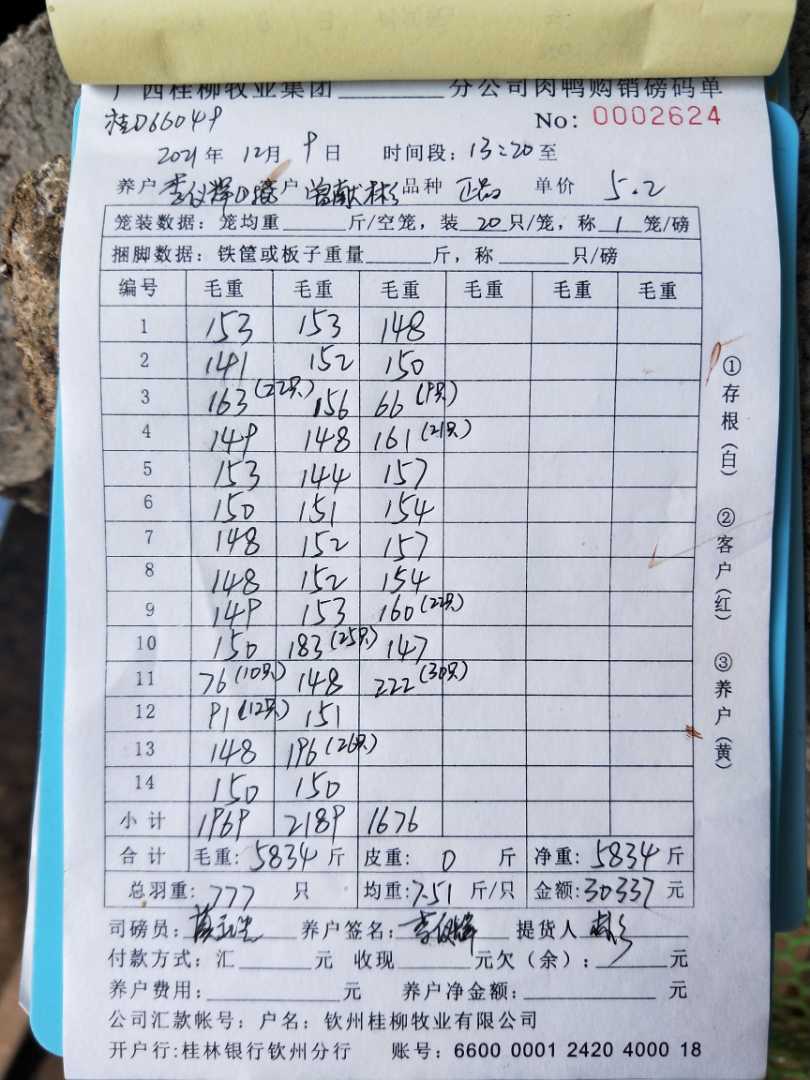 广西桂柳牧业集团________分公司肉鸭购销磅码单
桂D66049 No: 0002624
2021年 12月 9日 时间段: 13:20至
养户 李仪辉 客户 曾献彬 品种 正品 单价 5.2
笼装数据: 笼均重______斤/空笼, 装 20 只/笼, 称 1 笼/磅
捆脚数据: 铁筐或板子重量______斤, 称______只/磅
编号 毛重 毛重 毛重 毛重 毛重 毛重
1 153 153 148
2 141 152 150
3 163(22只) 156 66(9只)
4 149 148 161(21只)
5 153 144 157
6 150 151 154
7 148 152 157
8 148 152 154
9 149 153 160(22只)
10 150 183(25只) 147
11 76(10只) 148 222(30只)
12 91(12只) 151
13 148 196(26只)
14 150 150
小计 1969 2189 1676
合计 毛重: 5834 斤 皮重: 0 斤 净重: 5834 斤
总羽重: 777 只 均重: 7.51 斤/只 金额: 30337 元
司磅员: 养户签名: 李仪辉 提货人
付款方式: 汇______元 收现______元欠(余): ______元
养户费用: ________元 养户净金额: ________元
公司汇款帐号: 户名: 钦州桂柳牧业有限公司
开户行:桂林银行钦州分行 账号: 6600 0001 2420 4000 18
①存根(白) ②客户(红) ③养户(黄)